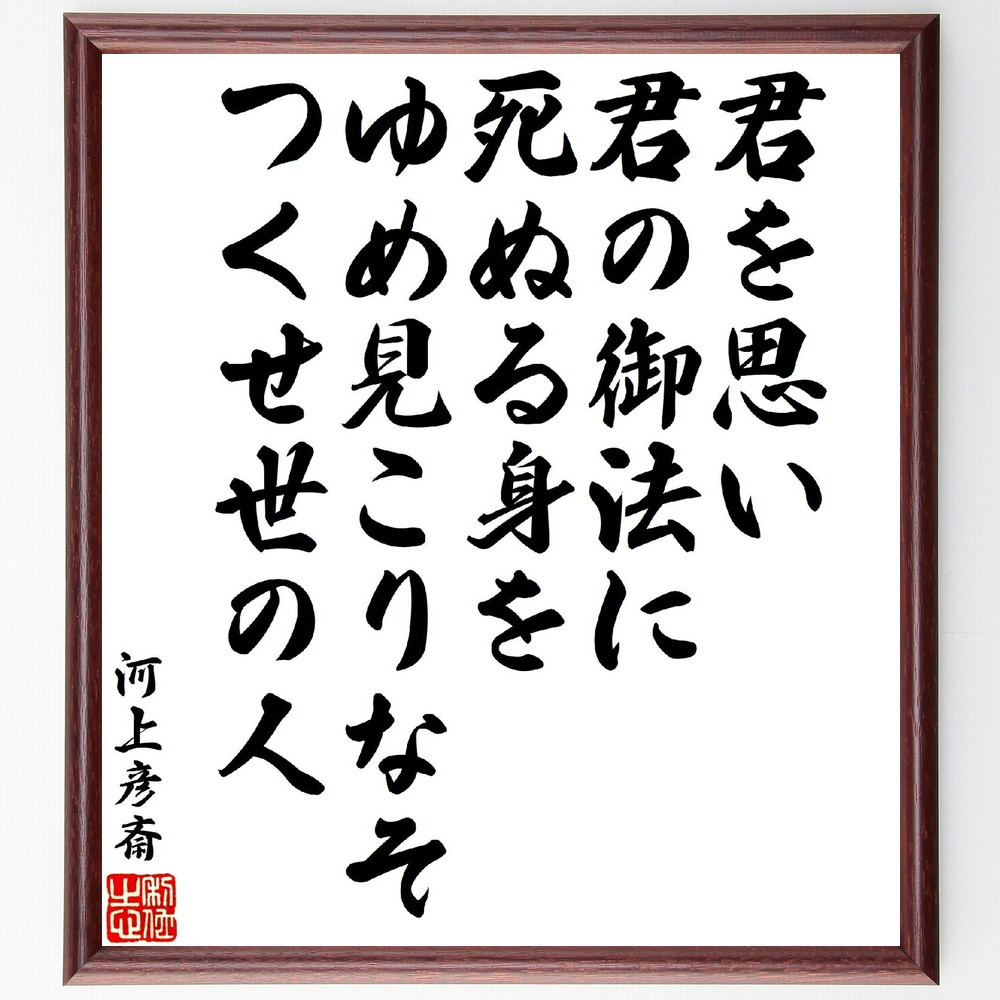 君を思い
君の御法に
死ぬる身を
ゆめ見こりなそ
つくせ世の人
河上彦斎